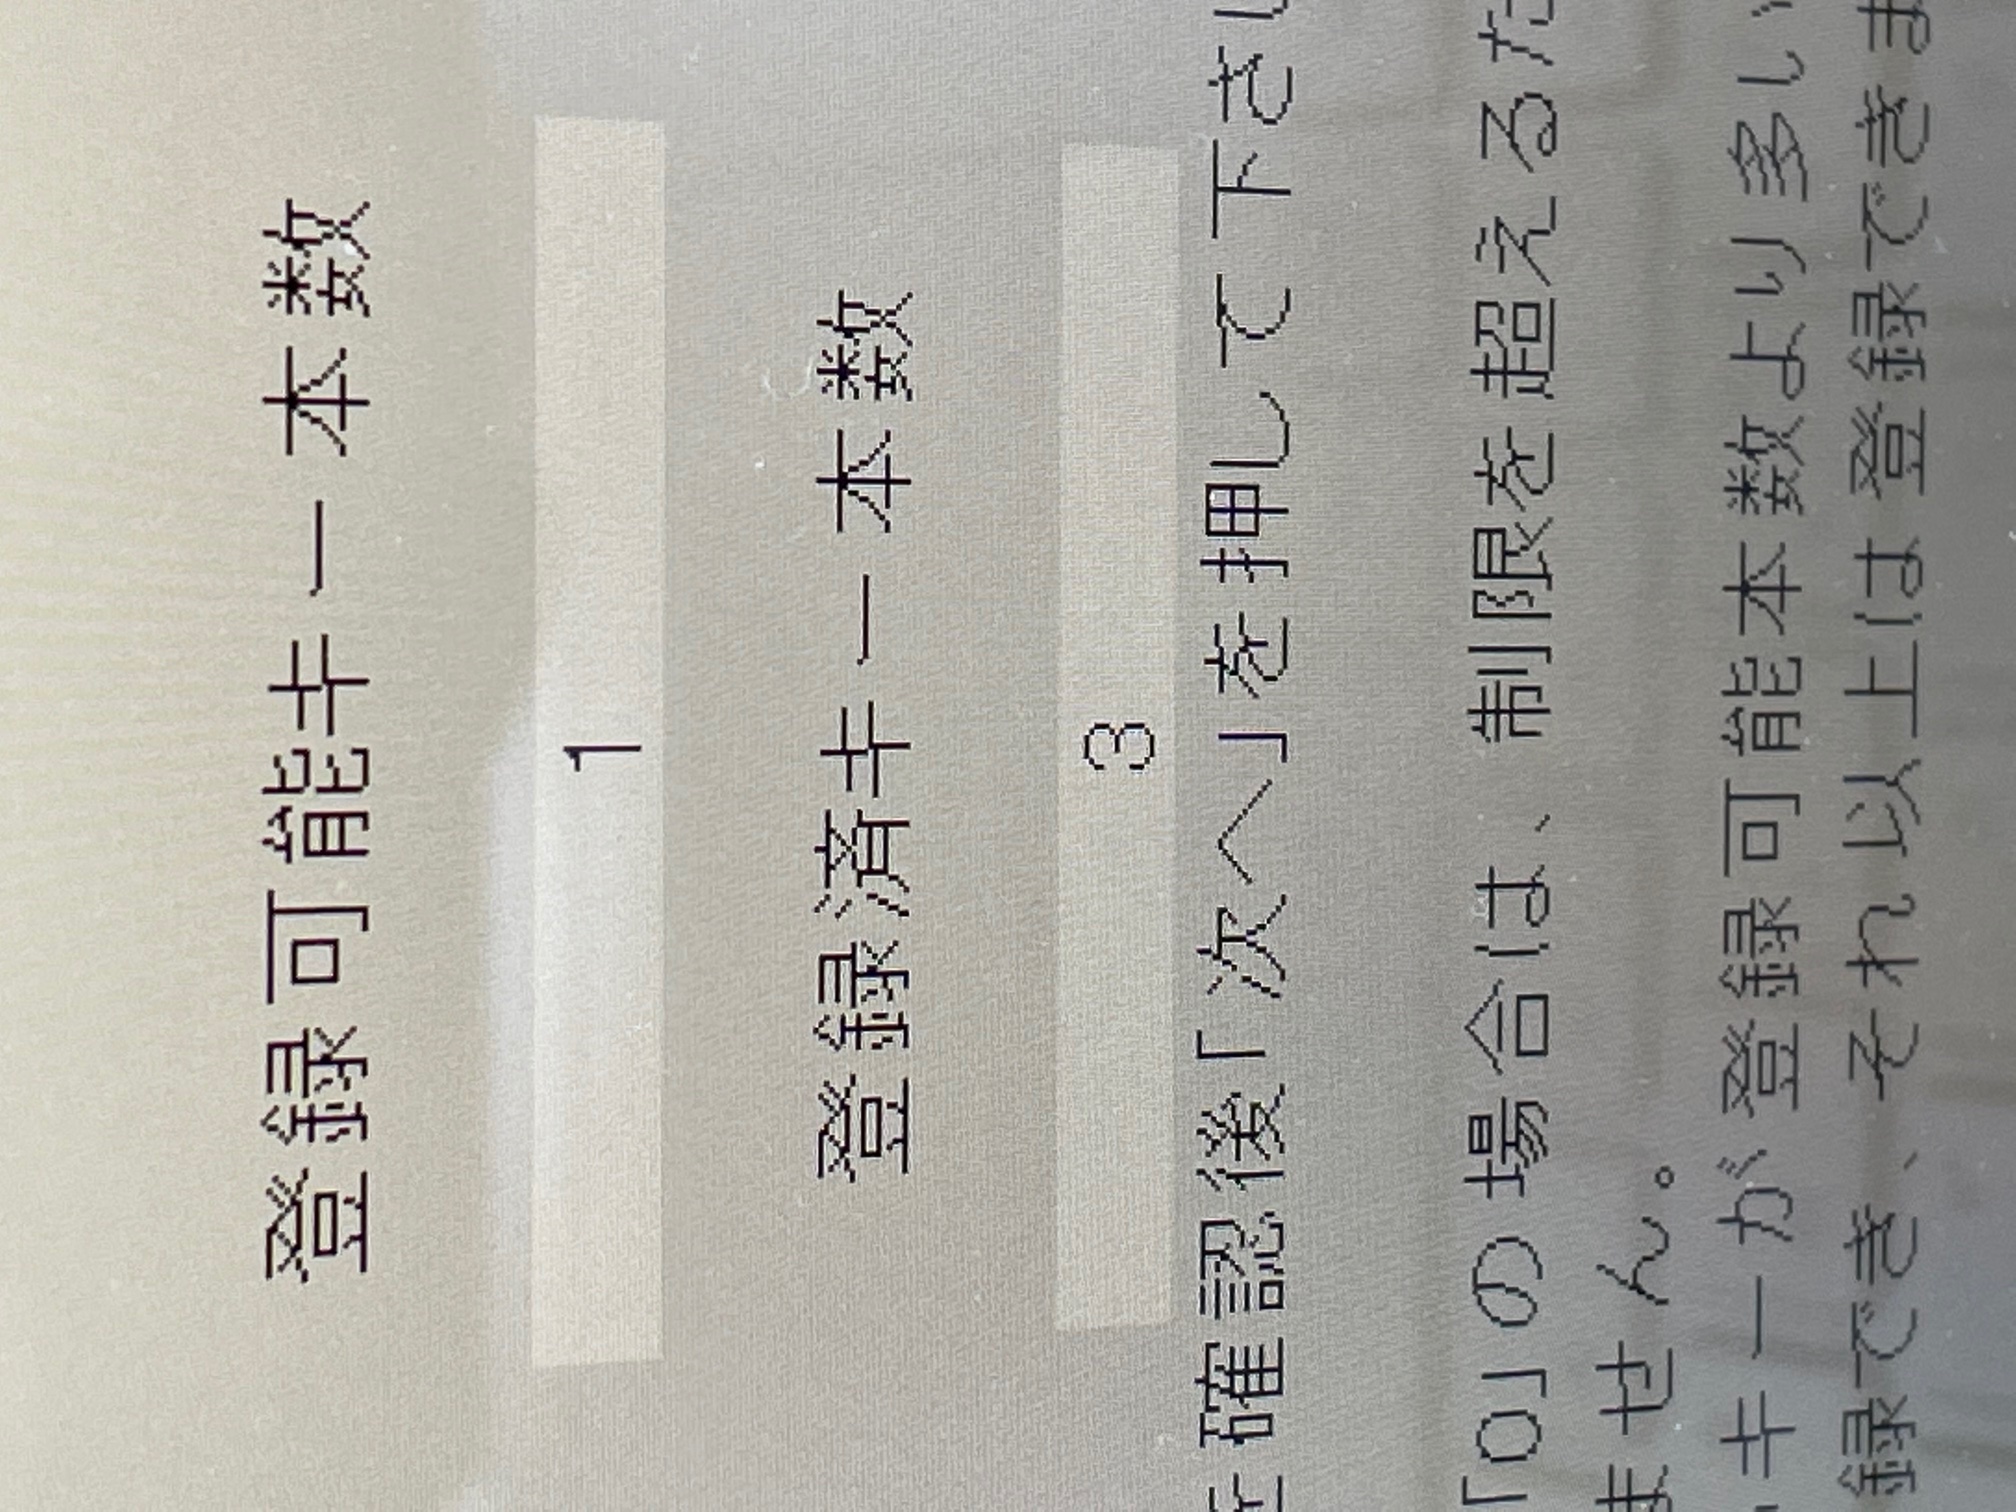 登録可能キー本数
1
登録済キー本数
3
を確認後「次へ」を押して下さい
「0」の場合は、制限を超えるた
ません。
キーが登録可能本数より多い
録でき、それ以上は登録できま